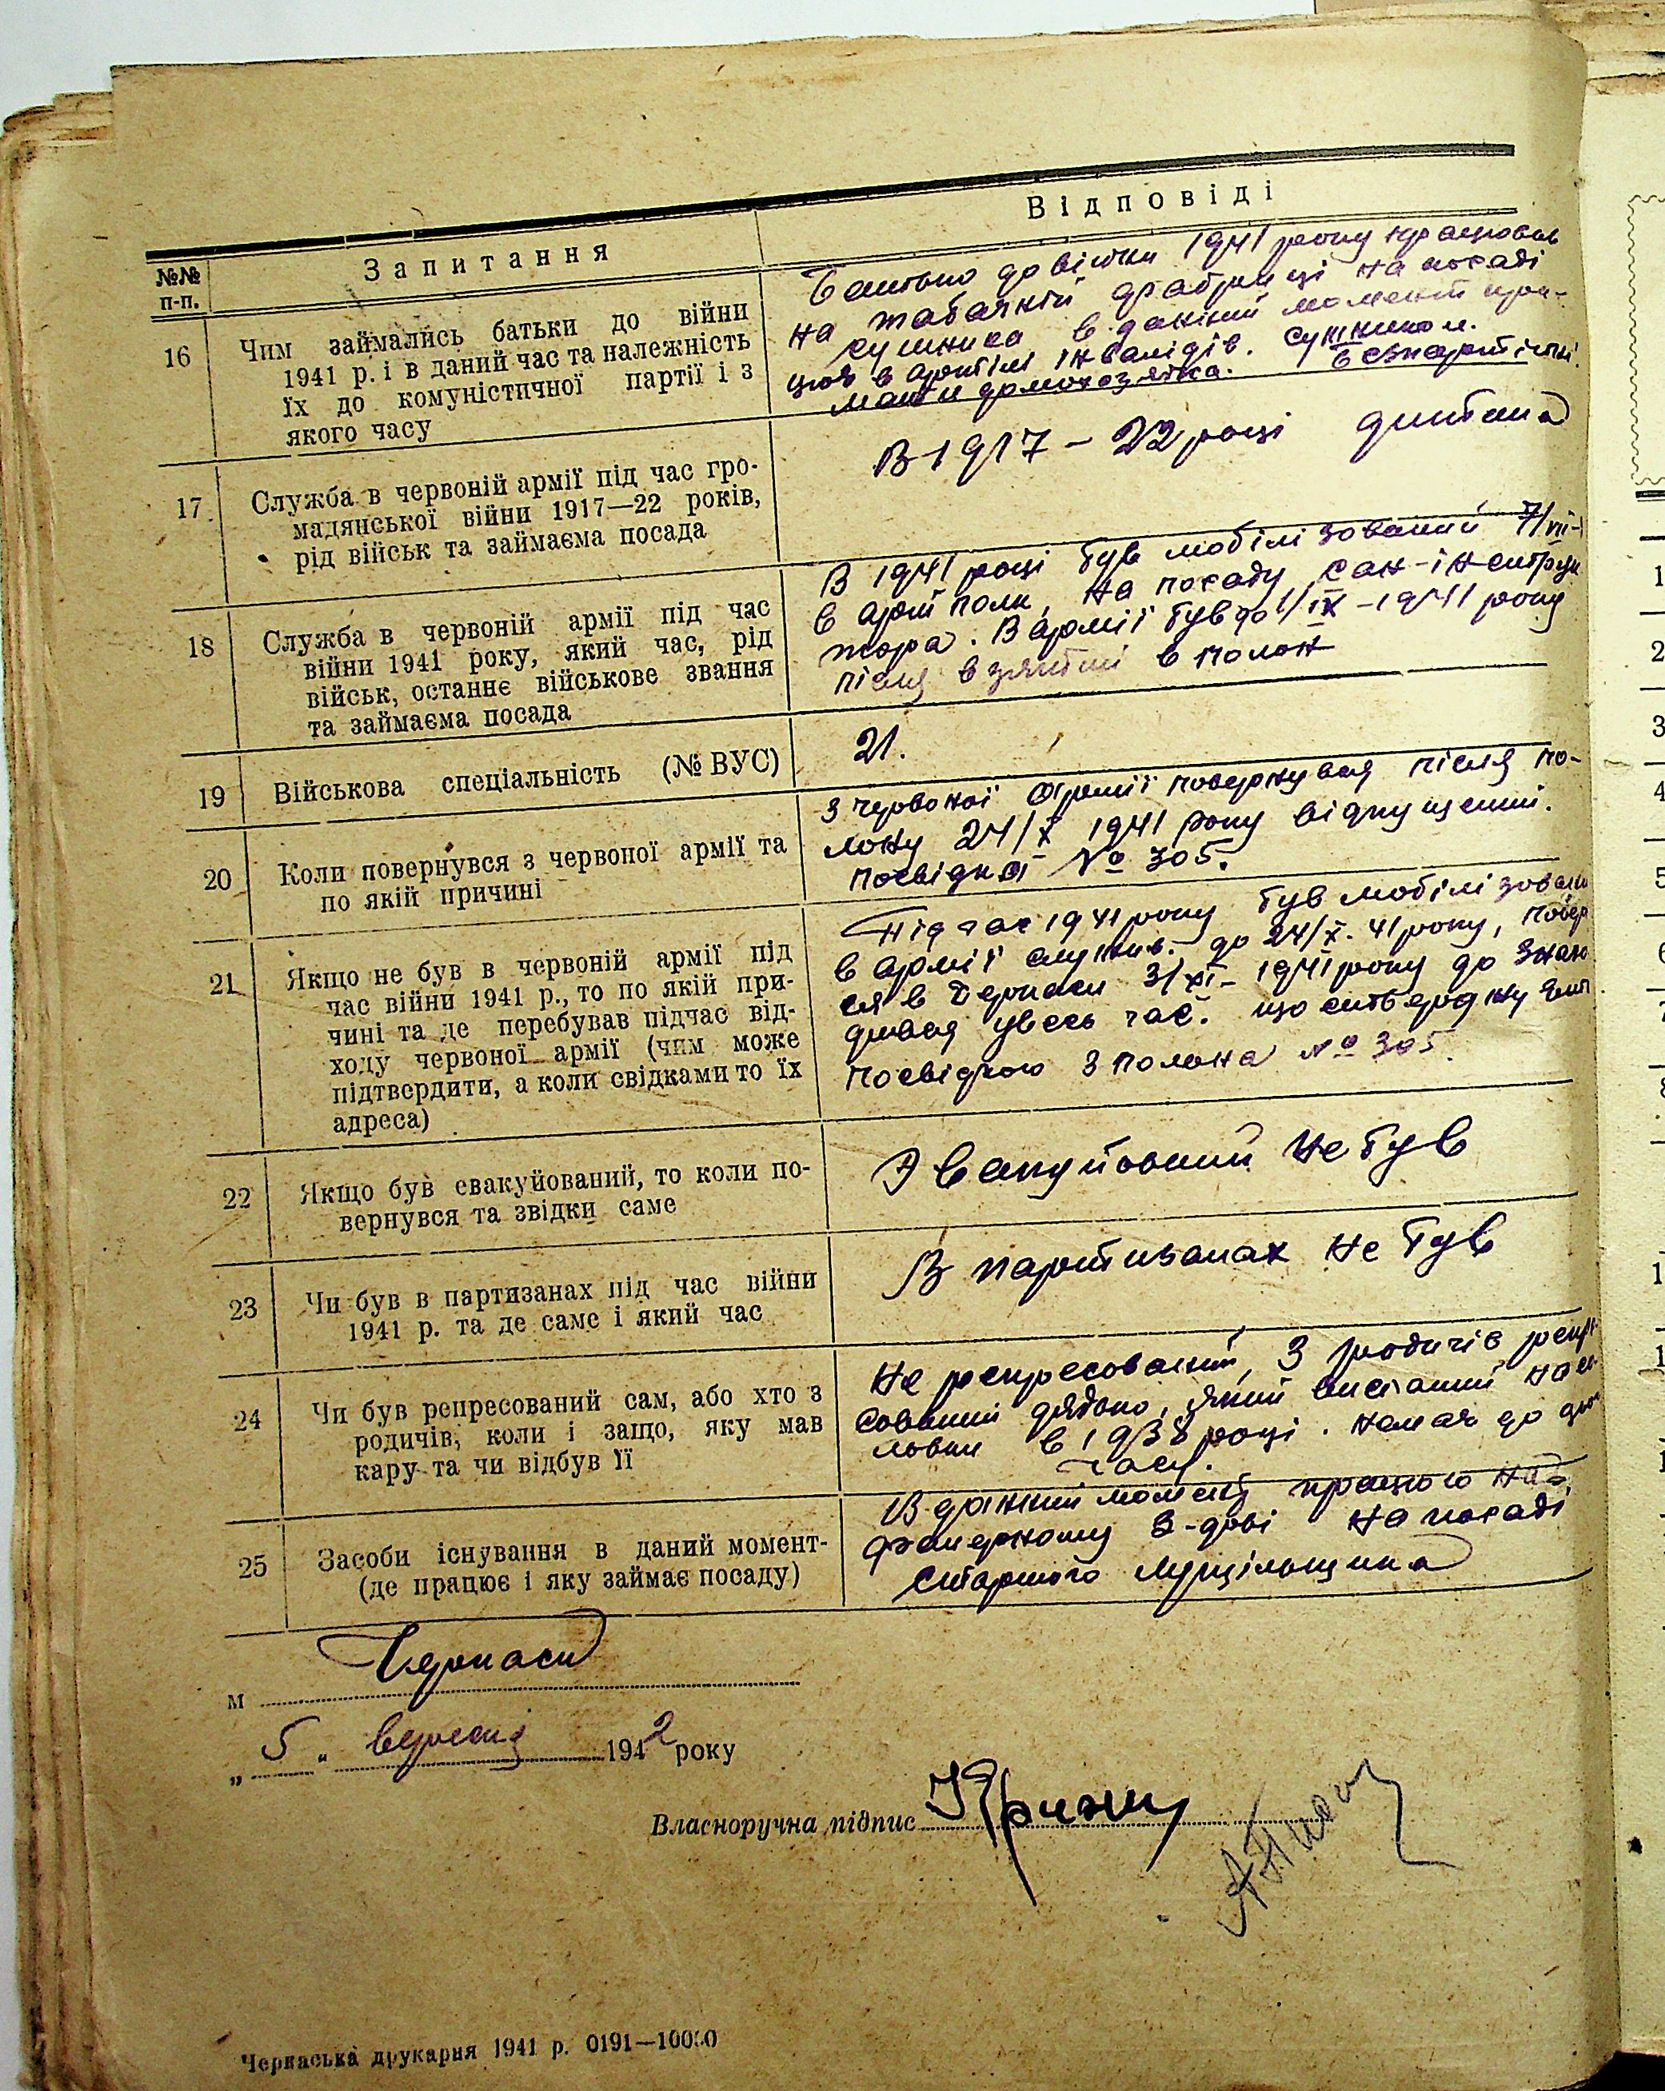 №№ п-п.
Запитання
Відповіді
16
Чим займались батьки до війни
1941 р. і в даний час та належність
їх до комуністичної партії і з
якого часу
Батько до війни 1941 року працював
на табачній фабриці на посаді
сушника в даний момент пра-
цює в артілі інвалідів. Сушником.
Мати домохозяйка. безпартійні.
17
Служба в червоній армії під час гро-
мадянської війни 1917—22 років,
рід військ та займаєма посада
В 1917 – 22 році дитина
18
Служба в червоній армії під час
війни 1941 року, який час, рід
військ, останнє військове звання
та займаєма посада
В 1941 році був мобілізований 7/VII-
в арт полк, на посаду сан-інструк
тора. В армії був до 1/IX – 1941 року
після взяття в полон
19
Військова спеціальність (№ ВУС)
21.
20
Коли повернувся з червоної армії та
по якій причині
З червоної Армії повернувся після по-
лону 24/X 1941 року відпущений.
посвідка № 305.
21
Якщо не був в червоній армії під
час війни 1941 р., то по якій при-
чині та де перебував підчас від-
ходу червоної армії (чим може
підтвердити, а коли свідками то їх
адреса)
Під час 1941 року був мобілізован
в армії служив. до 24/X. 41 року, повер
ся в Черкаси 3/XI – 1941 року до знахо
дився увесь час. що стверджую
посвідкою з полона № 305.
22
Якщо був евакуйований, то коли по-
вернувся та звідки саме
Эвакуйований не був
23
Чи був в партизанах під час війни
1941 р. та де саме і який час
В партизанах не був
24
Чи був репресований сам, або хто з
родичів, коли і защо, яку мав
кару та чи відбув її
Не репресований, З родичів репре
сований дядько, який висланий на
в 1938 році. немає до цього
часу.
25
Засоби існування в даний момент-
(де працює і яку займає посаду)
В даний момент працюю на
фанерному з-дові на посаді
старшого лущільщика
м Черкаси
„ 5 „ вересня 1942 року
Власноручна підпис
Черкаська друкарня 1941 р. 0191—10000